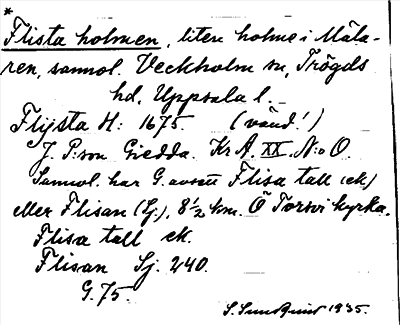 *
Flista holmen, liten holme i Mäla-
ren, sannol. Veckholm sn, Trögds
hd, Uppsala l.
Flijsta H: 1675. (vänd!)
J. P:son Giedda. Kr. A. XX. N:o O.
Sannol. har G. avsett Flisa tall (ek)
eller Flisan (Sj.), 8½ km. Ö Torsvi kyrka.
Flisa tall ek.
Flisan Sj. 240.
G. 75.
S. Sundquist 1935.